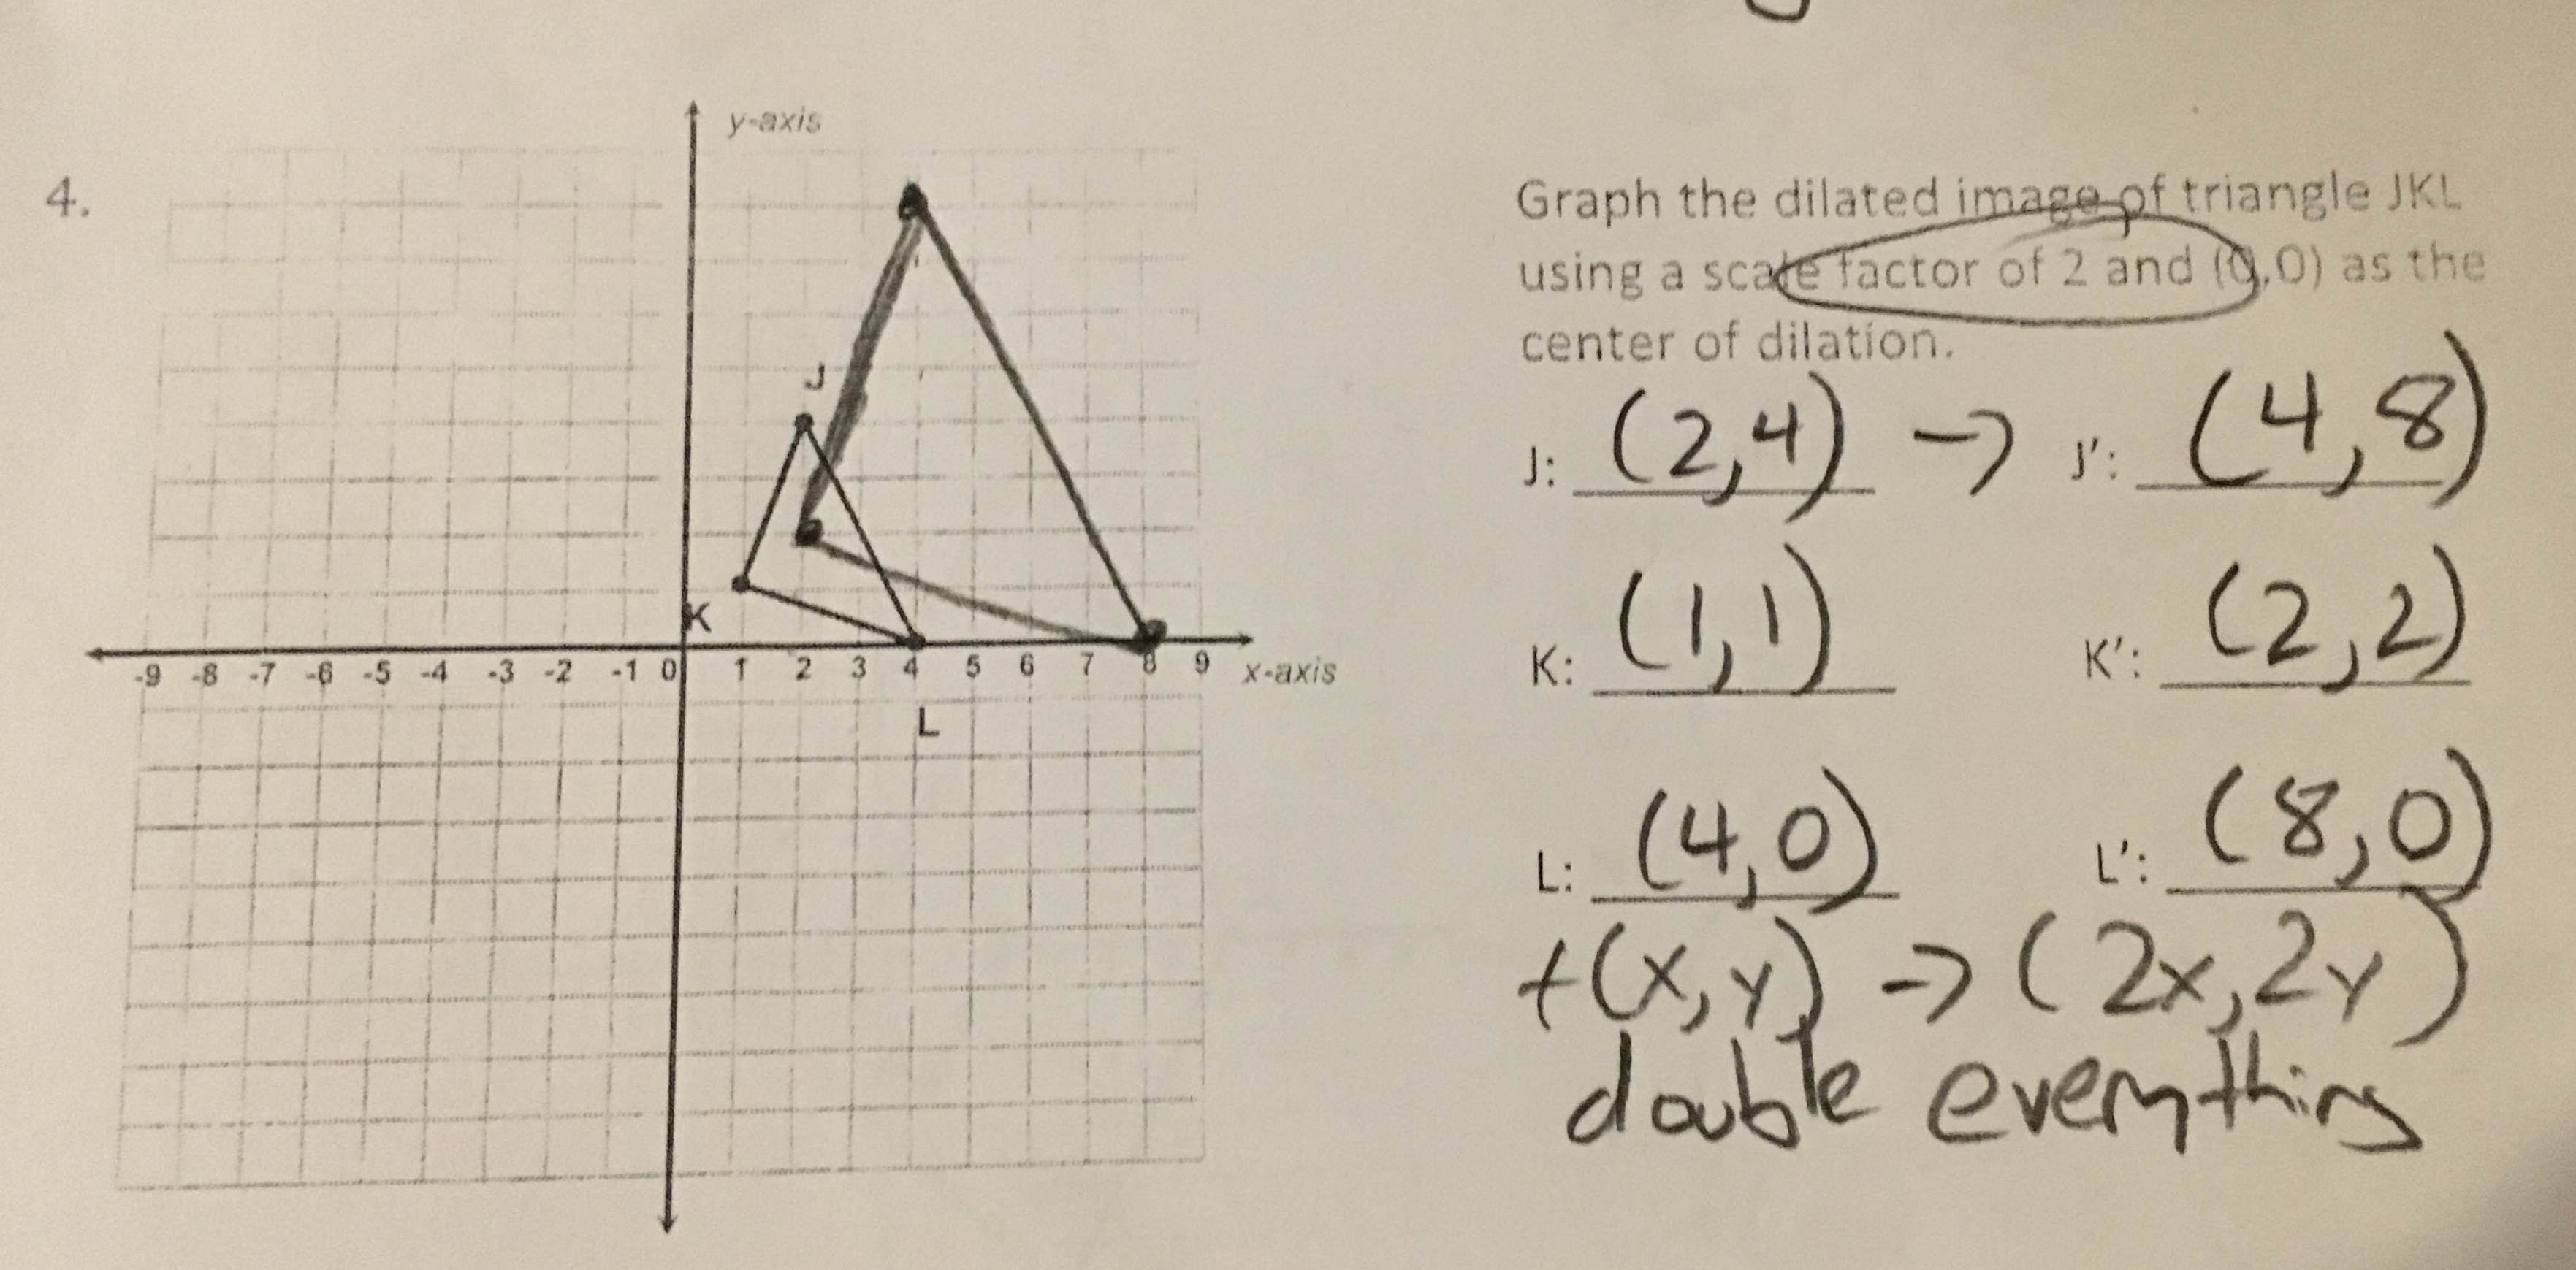 4.
y-axis
J
K
-9 -8 -7 -6 -5 -4 -3 -2 -1 0 1 2 3 4 5 6 7 8 9 x-axis
L
Graph the dilated image of triangle JKL
using a scale factor of 2 and (0,0) as the
center of dilation.
J: (2,4) → J': (4,8)
K: (1,1) K': (2,2)
L: (4,0) L': (8,0)
+(x,y) → (2x,2y)
double everything